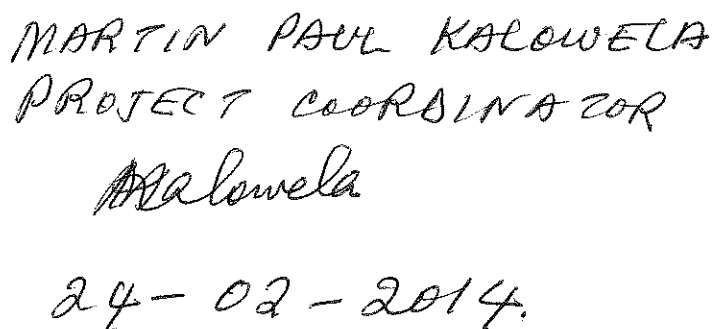 MARTIN PAUL KALOWELA
PROJECT COORDINATOR
MKalowela
24-02-2014.